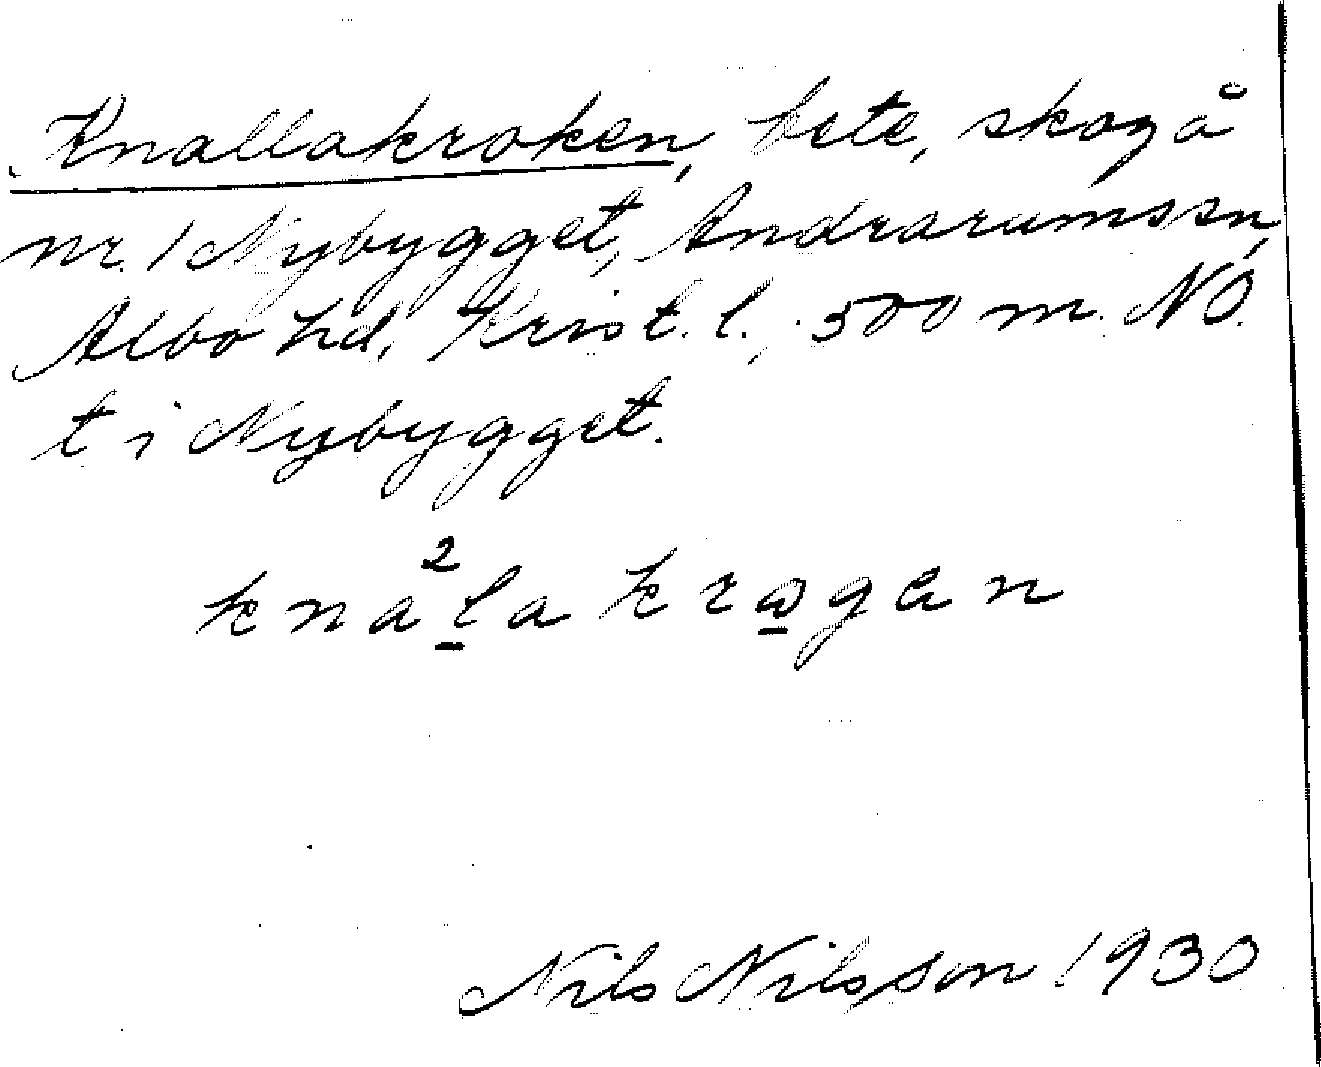 Knallakroken, bete, skog å
nr. 1 Nybygget, Andrarums sn,
Albo hd, Krist. l., 500 m. NÖ.
t i Nybygget.
kna²l̲akrɷ̲gen
Nils Nilsson 1930